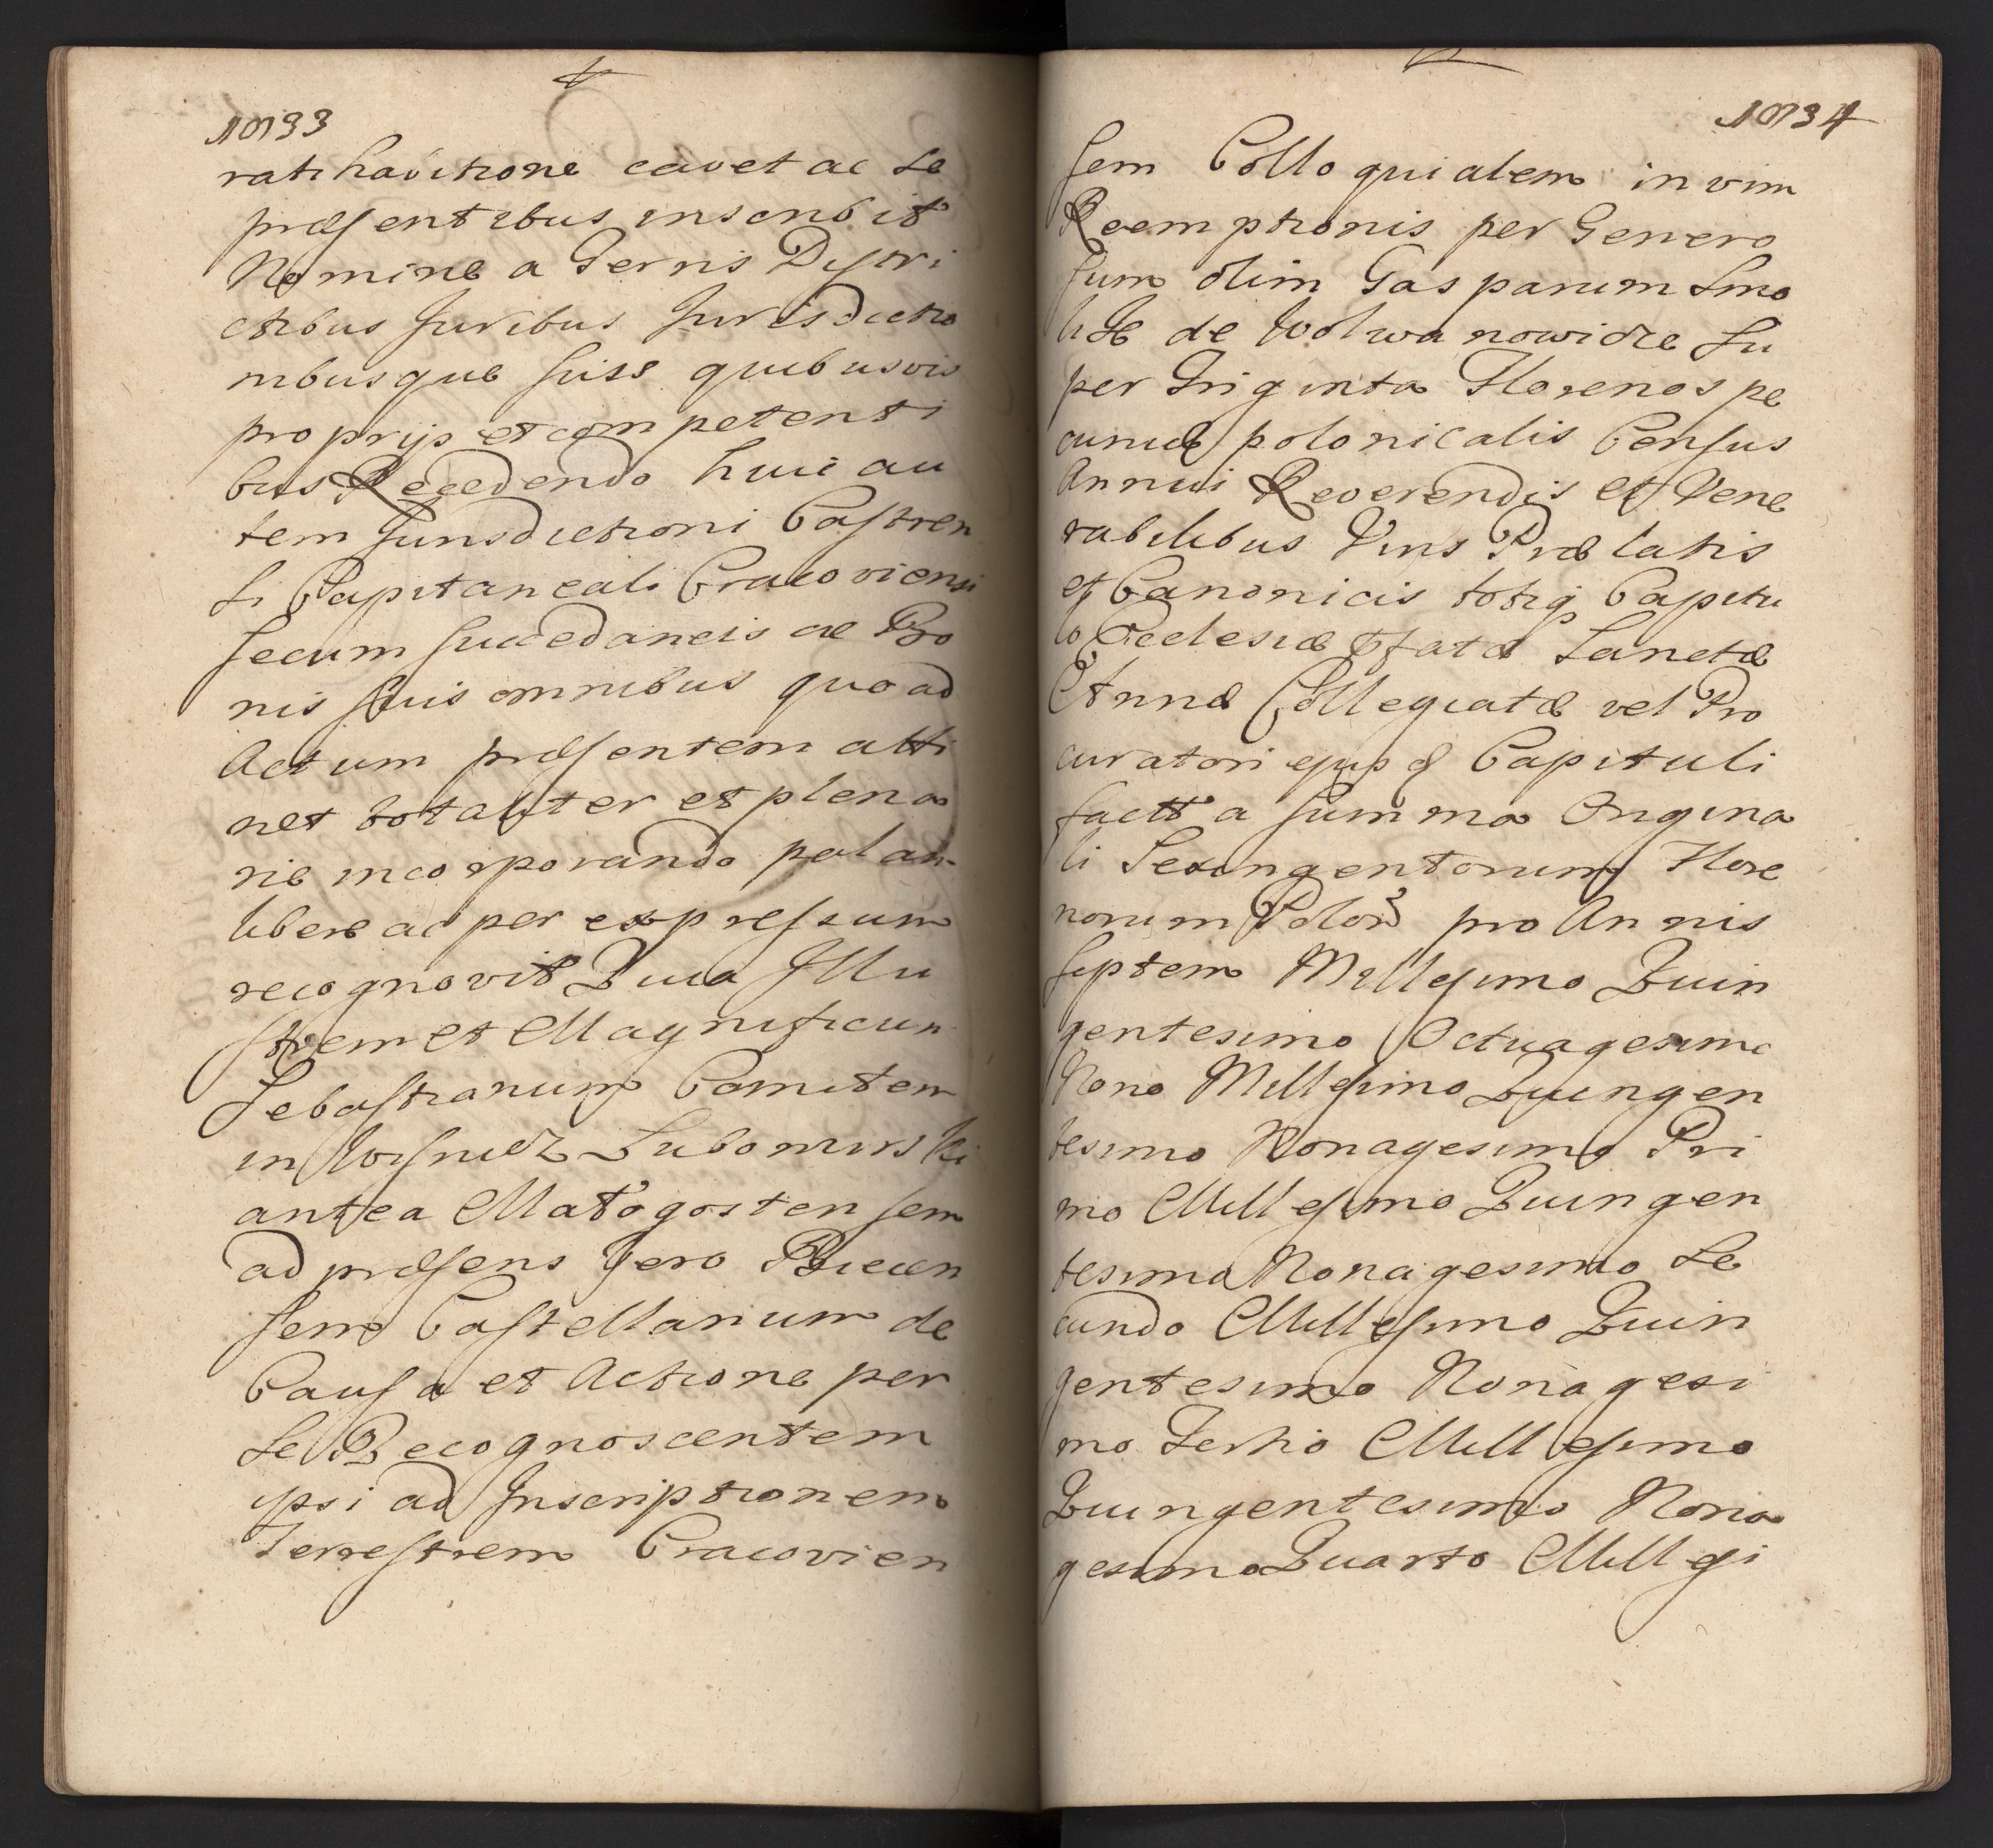 10733
ratihabitione cavet ac se
præsentibus inscribit
Nomine a Terris Distri
ctibus Juribus Jurisdictio
nibusque suis quibusvis
proprijs et competenti
bus Recedendo huic au
tem Jurisdictioni Castren
si Capitaneali Cracoviensi
secum succedaneis ac Bo
nis suis omnibus quo ad
Actum præsentem atti
net totaliter et plena
rie incorporando palam
libere ac per expressum
recognovit Quia Illu
strem et Magnificum
Sebastianum Comitem
in Wisnicz Lubomirski
antea Małogostensem
ad præsens vero Biecen
sem Castellanum de
Causa et Actione per
se Recognoscentem
ipsi ad Inscriptionem
Terrestrem Cracovien
10734
sem Colloquialem in vim
Reemptionis per Genero
sum olim Gasparum Smo
lik de Wolwanowicze Su
per Triginta Florenos pe
cuniæ polonicalis Census
Annui Reverendis et Vene
rabilibus Viris Prælatis
et Canonicis totiq Capitu
lo Ecclesiæ pfatæ Sanctæ
Annæ Collegiatæ vel Pro
curatori ejusd Capituli
factt a summa Origina
li Sexingentorum Flore
norum Polon pro Annis
septem Millesimo Quin
gentesimo Octuagesimo
Nono Millesimo Quingen
tesimo Nonagesimo Pri
mo Millesimo Quingen
tesimo Nonagesimo Se
cundo Millesimo Quin
gentesimo Nonagesi
mo Tertio Millesimo
Quingentesimo Nona
gesimo Quarto Millesi